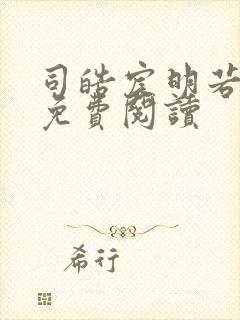 司皓宸明若
免費閱讀
希行